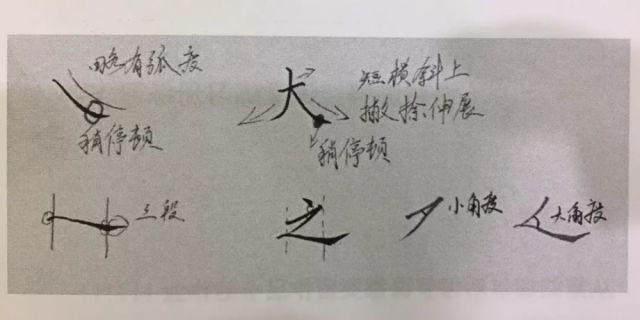 略有弧度
稍停顿
大
短横斜上
撇捺伸展
稍停顿
三段
之
小角度
大角度